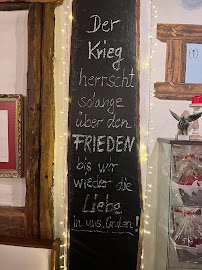 Der
Krieg
herrscht
solange
über den
FRIEDEN
bis wir
wieder die
Liebe
in uns finden!